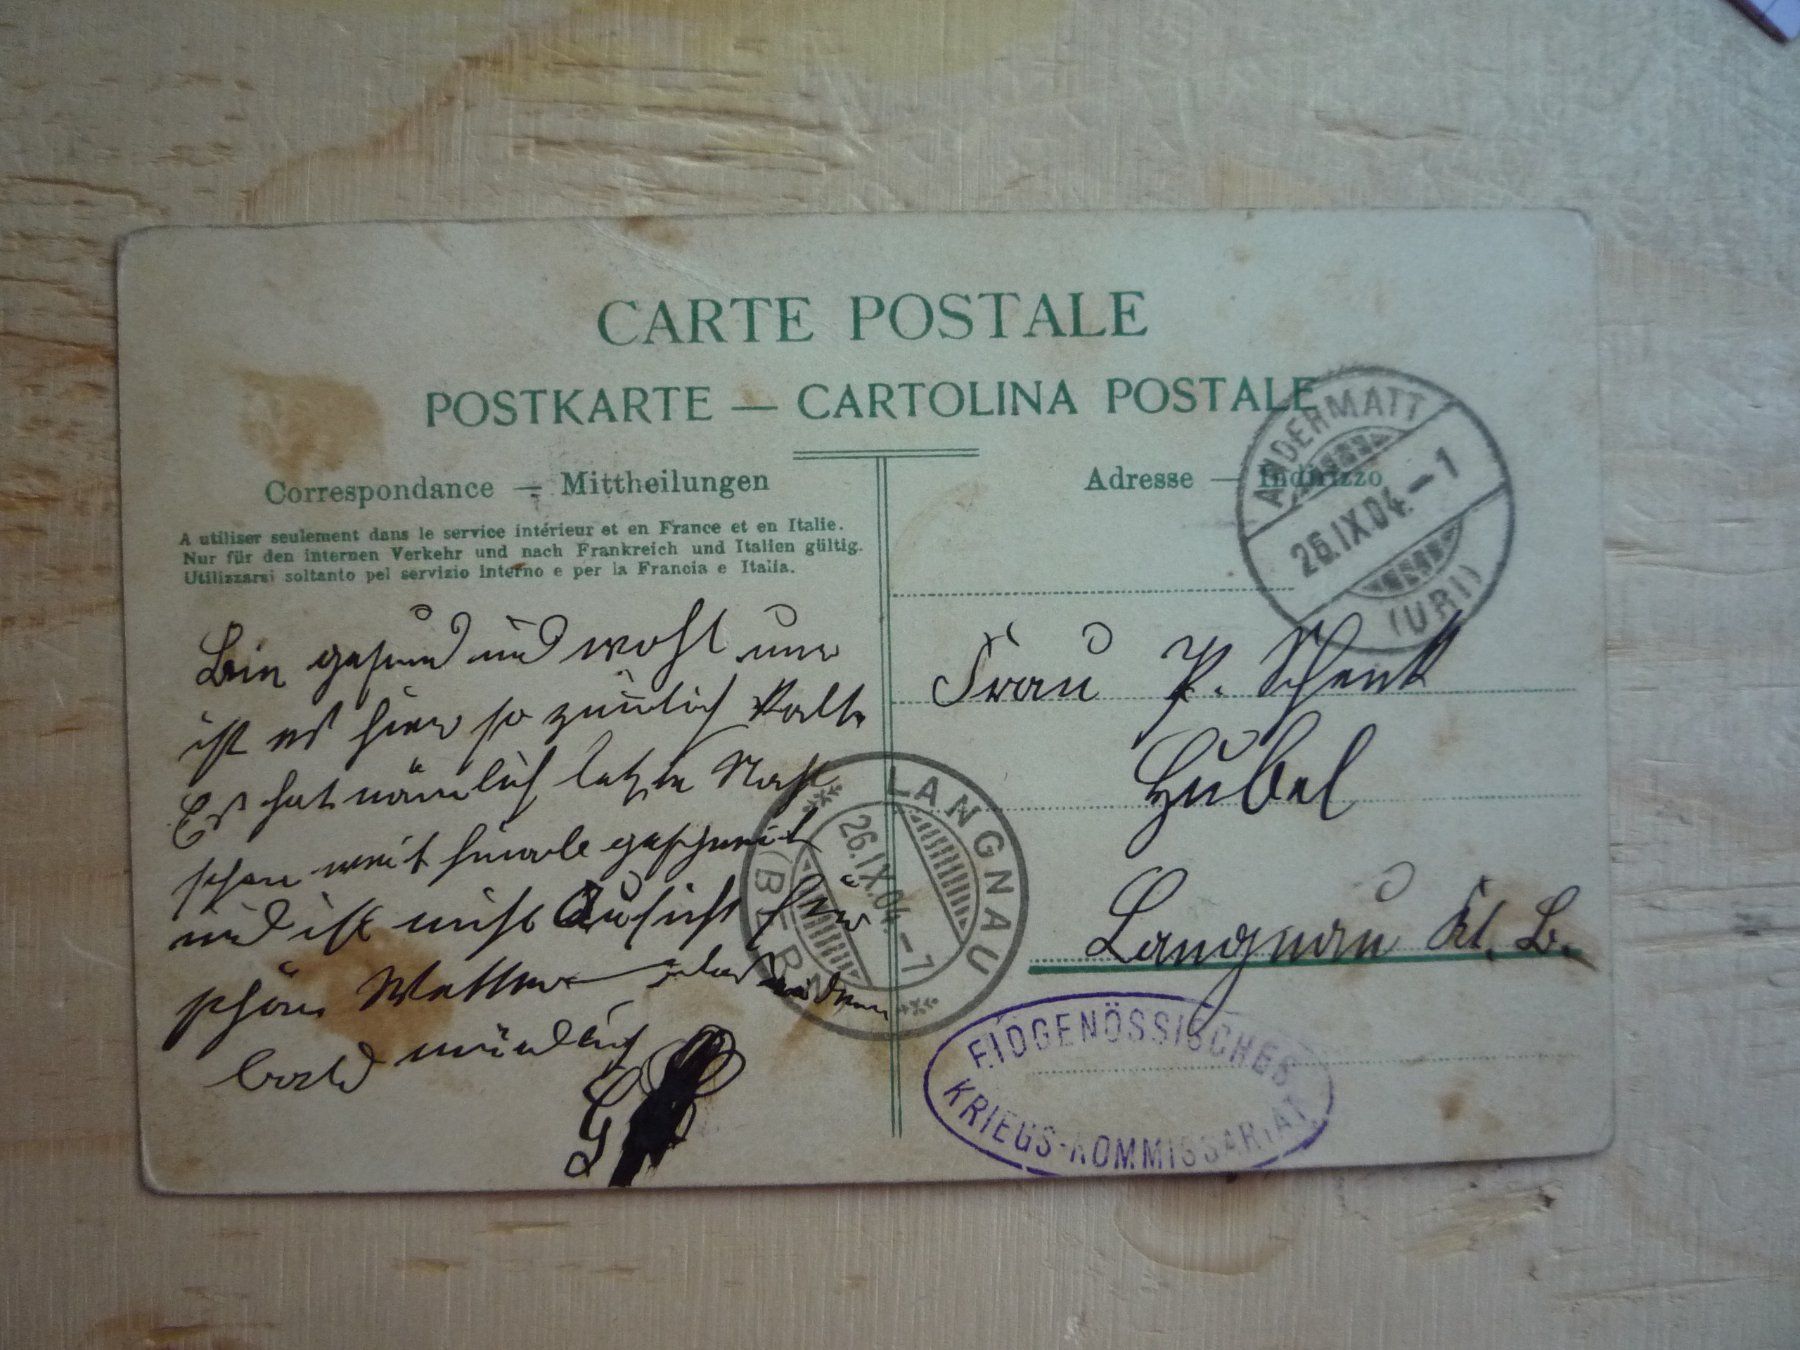 CARTE POSTALE
POSTKARTE — CARTOLINA POSTALE
Correspondance — Mittheilungen
A utiliser seulement dans le service intérieur et en France et en Italie.
Nur für den internen Verkehr und nach Frankreich und Italien gültig.
Utilizzarsi soltanto pel servizio interno e per la Francia e Italia.
Bin gesund und wohl nur
ist es hier so ziemlich kalt.
Es hat nämlich letzte Nacht
schon weit hinab geschneit
und ist nicht Aussicht für
schön Wetter
bald mündlich
Adresse — Indirizzo
Frau P. Schenk
Hubel
Langnau Kt. B.
ANDERMATT
26.IX.04.–1
(URI)
LANGNAU
26.IX.04.–7
(BERN)
EIDGENÖSSISCHES
KRIEGS-KOMMISSARIAT